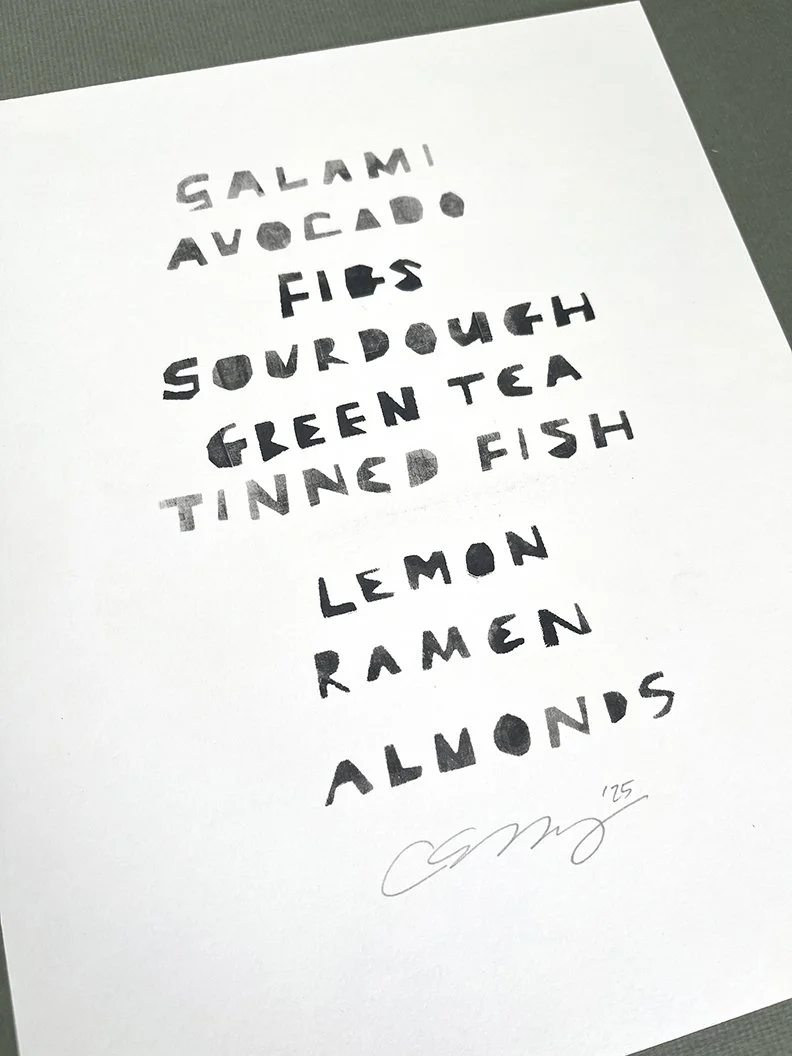 SALAMI
AVOCADO
FIGS
SOURDOUGH
GREEN TEA
TINNED FISH
LEMON
RAMEN
ALMONDS
'25